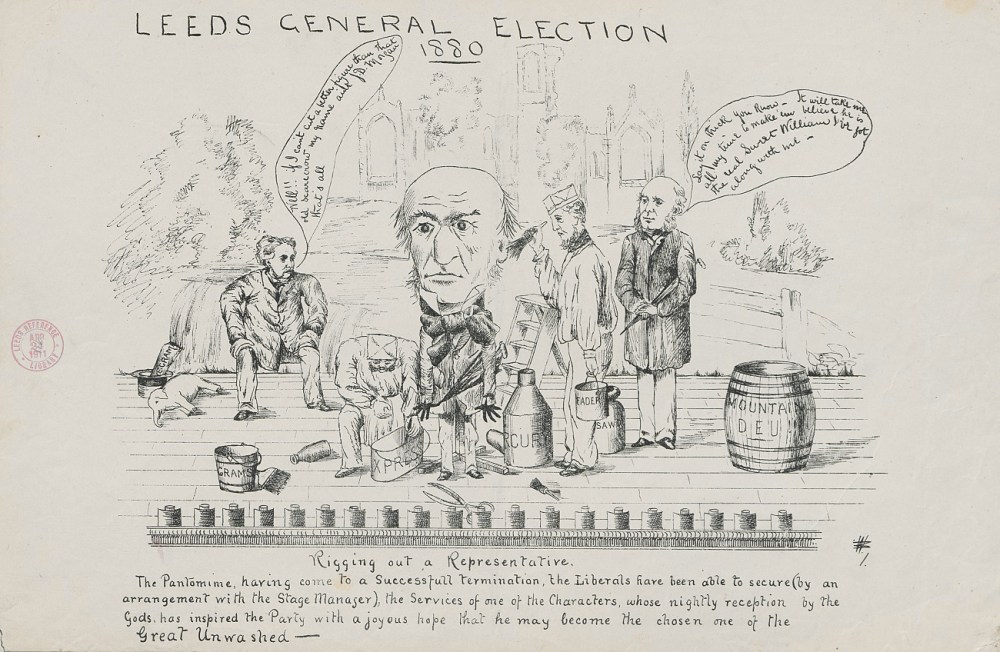 LEEDS GENERAL ELECTION
1880
Well!! if I cant cut a better figure than that
old scarecrow my name aint J.D. Morgan
that's all
Lay it on thick you know — It will take me
all my time to make em believe he is
the real Sweet William I've got
along with me —
LEEDS REFERENCE
LIBRARY
GRAMS
XPRES
RCURY
EADER
SAW
MOUNTAI
DEU
Rigging out a Representative.
The Pantomime, having come to a Successfull termination, the Liberals have been able to secure (by an
arrangement with the Stage Manager), the Services of one of the Characters, whose nightly reception by the
Gods, has inspired the Party with a joyous hope that he may become the chosen one of the
Great Unwashed —